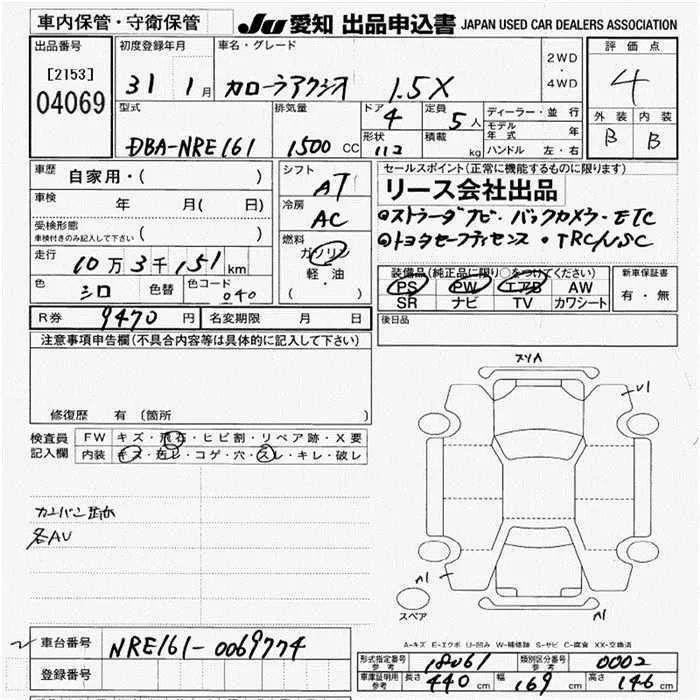 車内保管・守衛保管
JU 愛知 出品申込書 JAPAN USED CAR DEALERS ASSOCIATION
出品番号
[2153]
04069
初度登録年月
31 1月
車名・グレード
カローラアクシオ 1.5X
2WD
・
4WD
評価点
4
外装 内装
B B
型式
DBA-NRE161
排気量
1500 CC
ドア
4
形状
112
定員
5人
積載
kg
ディーラー・並行
モデル年式 年
ハンドル 左・右
車歴 自家用・( )
車検 年 月( 日)
受検形態
車検付きのみ記入して下さい ( )
走行 10万3千151km
色 シロ 色替 色コード 040
シフト
AT
冷房
AC
燃料
ガソリン
軽・油
( ・ )
セールスポイント(正常に機能するものに限ります)
リース会社出品
◎ストラーダナビ・バックカメラ・ETC
◎トヨタセーフティセンス・TRC/VSC
装備品(純正品に限り○をつけてください)
PS PW エアB AW
SR ナビ TV カワシート
新車保証書
有・無
R券 9470円 名変期限 月 日
後日品
注意事項申告欄(不具合内容等は具体的に記入して下さい)
修復歴 有(箇所 )
検査員記入欄
FW キズ・飛石・ヒビ割・リペア跡・X要
内装 キズ・色レ・コゲ・穴・スレ・キレ・破レ
各AU
スリA
U1
A1
A1
スペア
A-キズ E-エクボ U-凹み W-補修跡 S-サビ C-腐食 XX-交換済
車台番号 NRE161-0069774
登録番号
形式指定番号 参考 18061
類別区分番号 参考 0002
車庫証明用 参考 長さ 440cm 幅 169cm 高さ 146cm